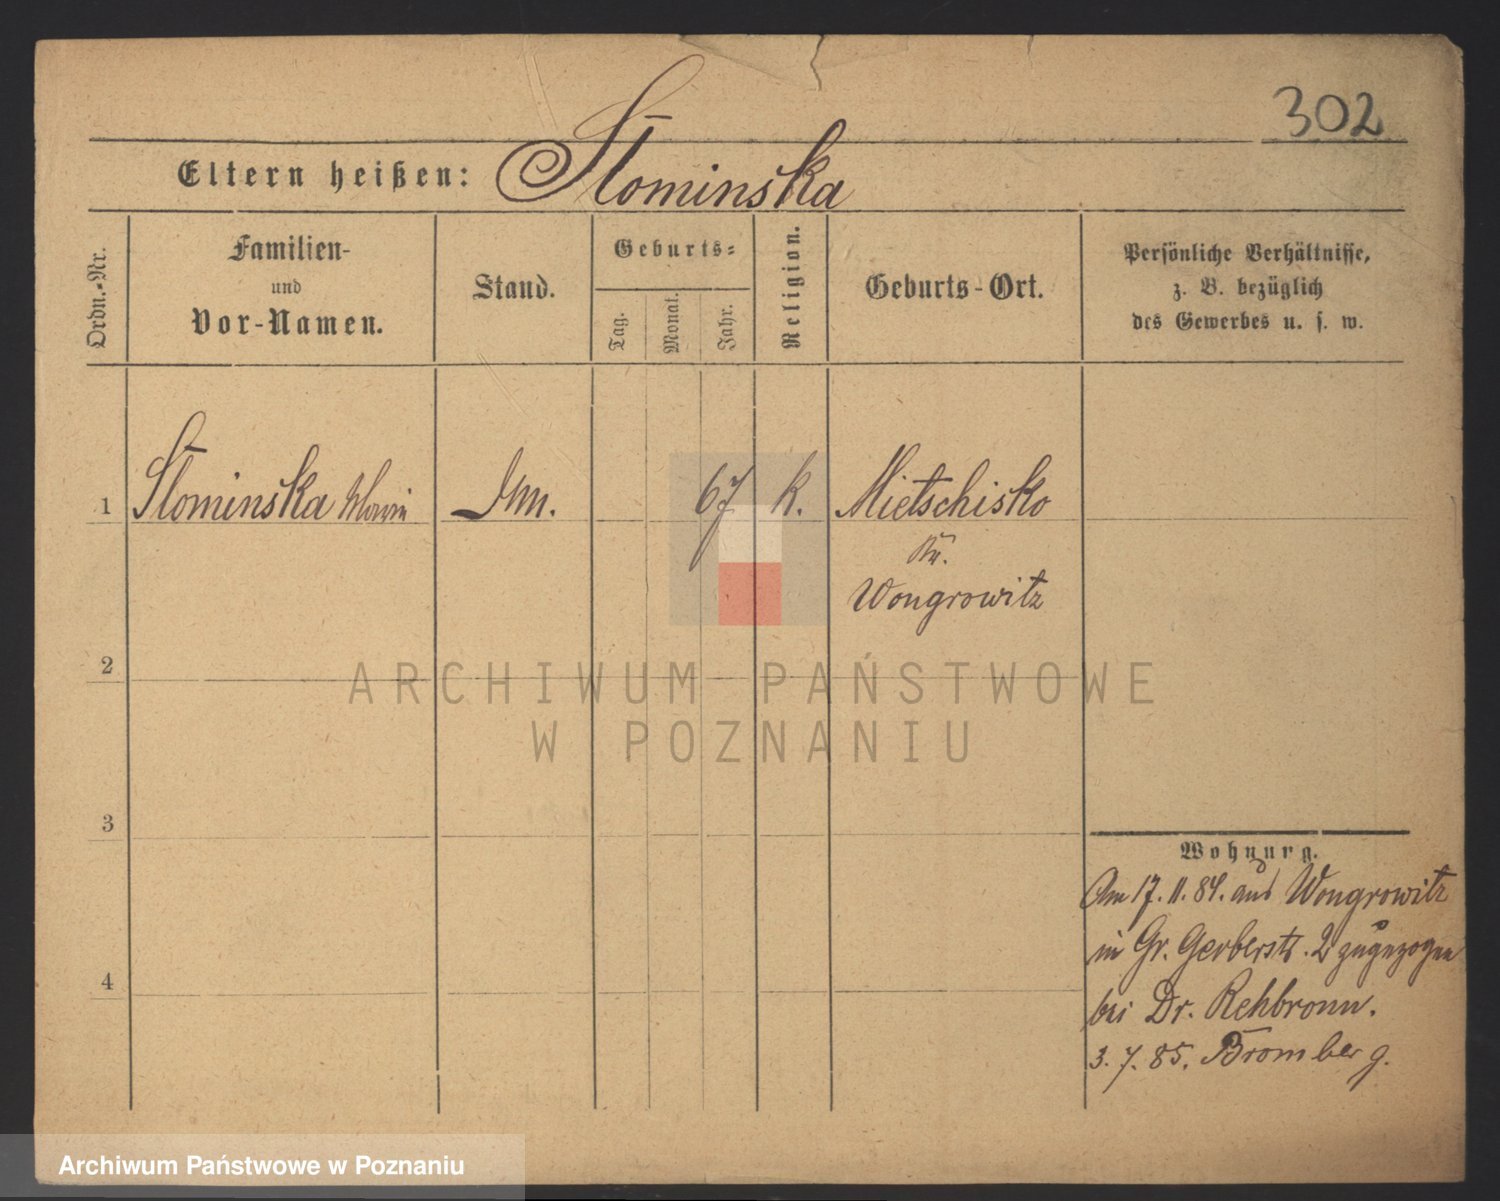 302
Eltern heißen: Słominska
Ordn.-Nr.
Familien-
und
Vor-Namen.
Stand.
Geburts-
Tag.
Monat.
Jahr.
Religion.
Geburts-Ort.
Persönliche Verhältnisse,
z. B. bezüglich
des Gewerbes u. s. w.
1 Słominska Marie 67 k. Mietschisko
Kr.
Wongrowitz
2
ARCHIWUM PAŃSTWOWE
W POZNANIU
3
Wohnung.
Am 17. 11. 84. aus Wongrowitz
in Gr. Gerberstr. 2 zugezogen
4
bei Dr. Rehbronn.
3. 7. 85. Bromberg.
Archiwum Państwowe w Poznaniu